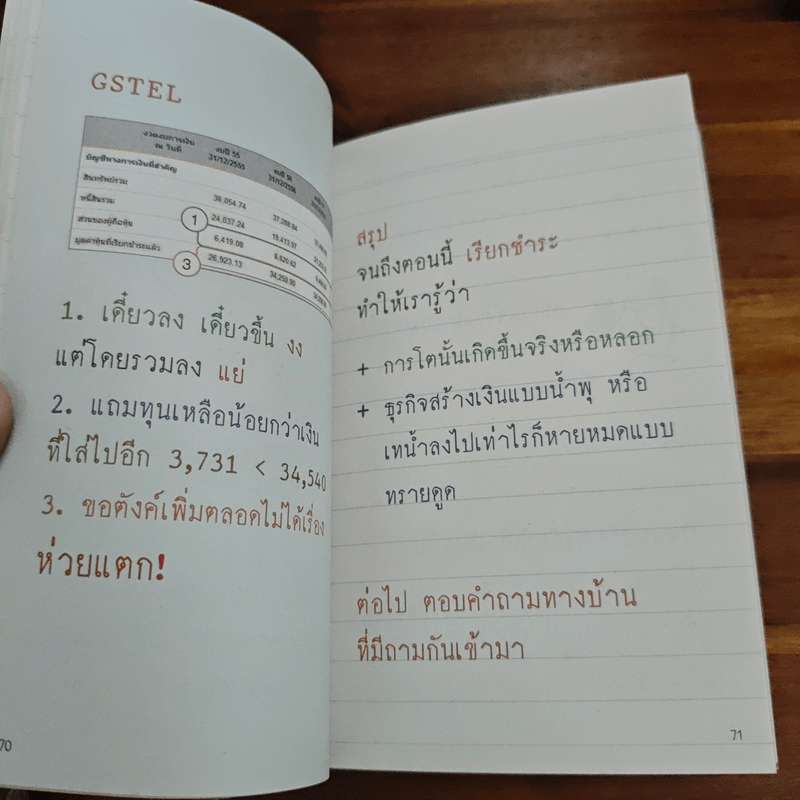 GSTEL
งวดงบการเงิน
ณ วันที่
งบปี 55
31/12/2555
งบปี 56
31/12/2556
บัญชีทางการเงินที่สำคัญ
สินทรัพย์รวม 38,054.74 37,288.84
หนี้สินรวม 24,037.24 19,413.97
ส่วนของผู้ถือหุ้น 1 6,419.08 8,620.62
มูลค่าหุ้นที่เรียกชำระแล้ว 3 26,923.13 34,250.90
1. เดี๋ยวลง เดี๋ยวขึ้น งง
แต่โดยรวมลง แย่
2. แถมทุนเหลือน้อยกว่าเงิน
ที่ใส่ไปอีก 3,731 < 34,540
3. ขอตังค์เพิ่มตลอดไม่ได้เรื่อง
ห่วยแตก!
70
สรุป
จนถึงตอนนี้ เรียกชำระ
ทำให้เรารู้ว่า
+ การโตนั้นเกิดขึ้นจริงหรือหลอก
+ ธุรกิจสร้างเงินแบบน้ำพุ หรือ
เทน้ำลงไปเท่าไรก็หายหมดแบบ
ทรายดูด
ต่อไป ตอบคำถามทางบ้าน
ที่มีถามกันเข้ามา
71